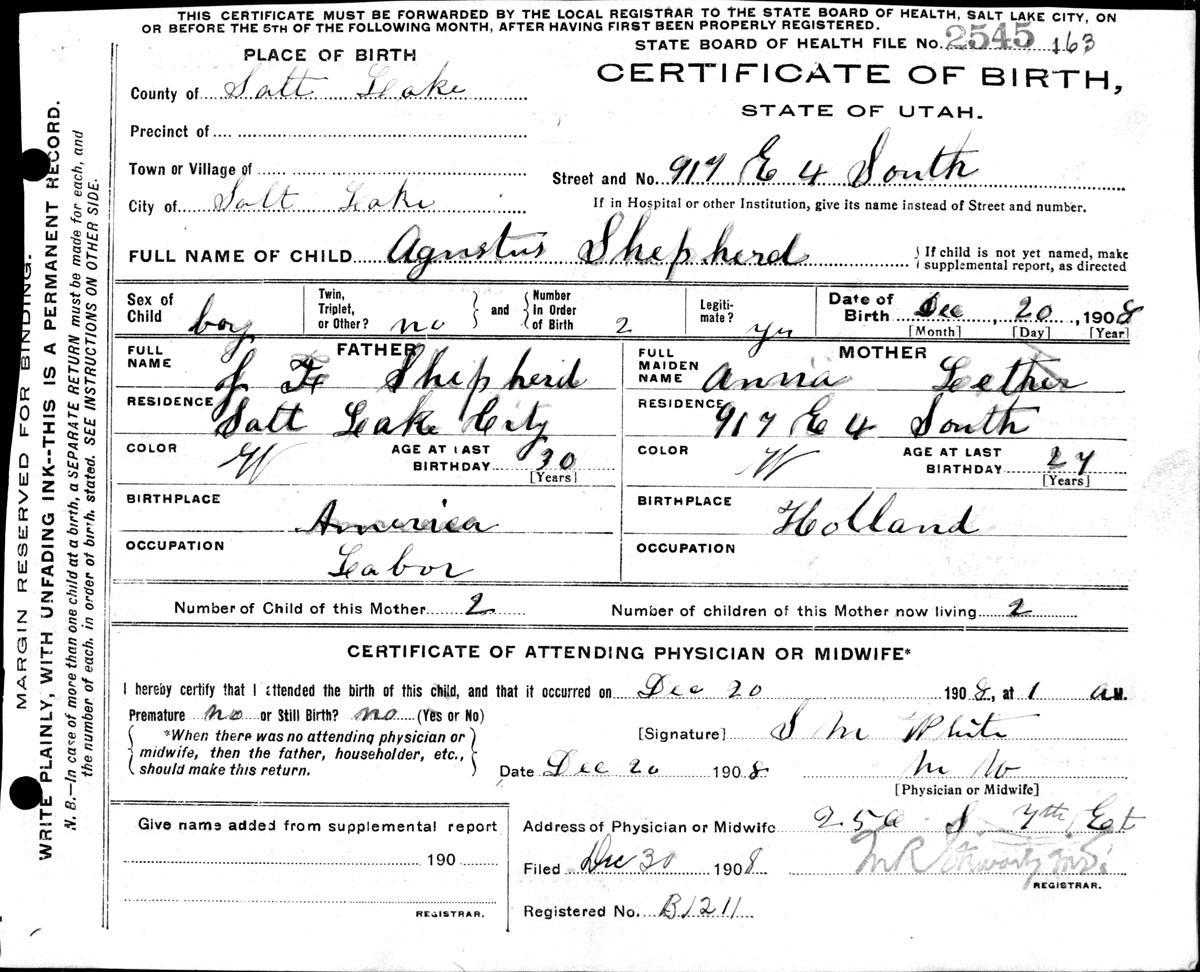 THIS CERTIFICATE MUST BE FORWARDED BY THE LOCAL REGISTRAR TO THE STATE BOARD OF HEALTH, SALT LAKE CITY, ON
OR BEFORE THE 5TH OF THE FOLLOWING MONTH, AFTER HAVING FIRST BEEN PROPERLY REGISTERED.
STATE BOARD OF HEALTH FILE No. 2545 163
PLACE OF BIRTH
CERTIFICATE OF BIRTH,
STATE OF UTAH.
County of Salt Lake
Precinct of
Town or Village of
Street and No. 917 E 4 South
City of Salt Lake
If in Hospital or other Institution, give its name instead of Street and number.
FULL NAME OF CHILD Agustus Shepherd
If child is not yet named, make
supplemental report, as directed
Sex of Child boy
Twin, Triplet, or Other? no
and
Number In Order of Birth 2
Legiti-mate? yes
Date of Birth Dec, 20, 1908
[Month] [Day] [Year]
FATHER
FULL NAME J F Shepherd
RESIDENCE
Salt Lake City
COLOR W
AGE AT LAST BIRTHDAY 30
[Years]
BIRTHPLACE
America
OCCUPATION
Labor
MOTHER
FULL MAIDEN NAME Anna Lether
RESIDENCE
917 E 4 South
COLOR W
AGE AT LAST BIRTHDAY 27
[Years]
BIRTHPLACE
Holland
OCCUPATION
Number of Child of this Mother 2
Number of children of this Mother now living 2
CERTIFICATE OF ATTENDING PHYSICIAN OR MIDWIFE*
I hereby certify that I attended the birth of this child, and that it occurred on Dec 20 1908, at 1 a M.
Premature no or Still Birth? no (Yes or No)
*When there was no attending physician or
midwife, then the father, householder, etc.,
should make this return.
[Signature] S M White
Date Dec 20 1908
M W
[Physician or Midwife]
Give name added from supplemental report
190
REGISTRAR.
Address of Physician or Midwife 250 S 7th Est
Filed Dec 30 1908
REGISTRAR.
Registered No. B1211
MARGIN RESERVED FOR BINDING.
WRITE PLAINLY, WITH UNFADING INK--THIS IS A PERMANENT RECORD.
N. B.—In case of more than one child at a birth, a SEPARATE RETURN must be made for each, and
the number of each, in order of birth, stated. SEE INSTRUCTIONS ON OTHER SIDE.